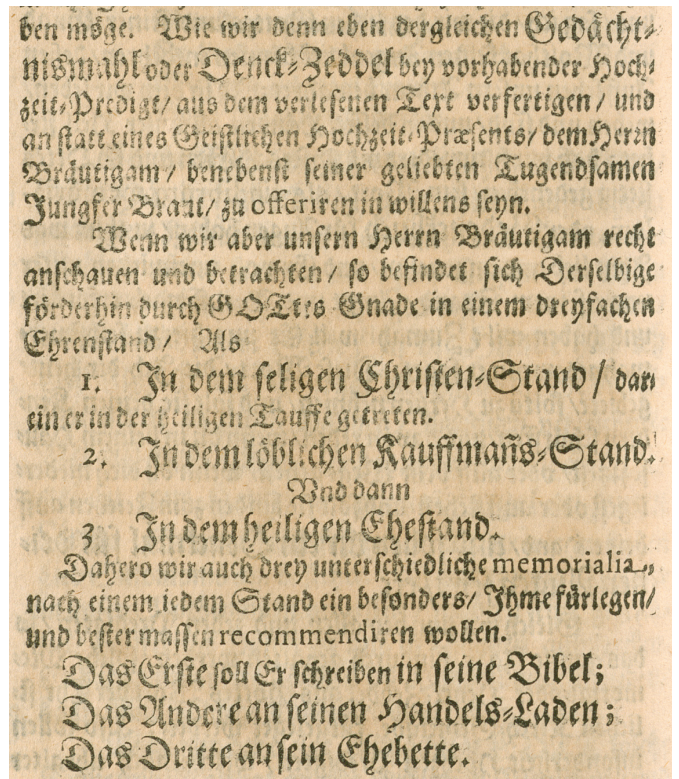 ben möge. Wie wir denn eben dergleichen Gedächt-
nismahl oder Denck-Zeddel bey vorhabender Hoch-
zeit-Predigt/ aus dem verlesenen Text verfertigen/ und
an statt eines Geistlichen Hochzeit-Præsents/ dem Herrn
Bräutigam/ benebenst seiner geliebten Tugendsamen
Jungfer Braut/ zu offeriren in willens seyn.
Wenn wir aber unsern Herrn Bräutigam recht
anschauen und betrachten/ so befindet sich Derselbige
förderhin durch GOTtes Gnade in einem dreyfachen
Ehrenstand/ Als
1. In dem seligen Christen-Stand/ dar-
ein er in der heiligen Tauffe getreten.
2. In dem löblichen Kauffmañs-Stand.
Vnd dann
3 In dem heiligen Ehestand.
Dahero wir auch drey unterschiedliche memorialia,
nach einem iedem Stand ein besonders/ Ihme fürlegen/
und bester massen recommendiren wollen.
Das Erste soll Er schreiben in seine Bibel;
Das Andere an seinen Handels-Laden;
Das Dritte an sein Ehebette.